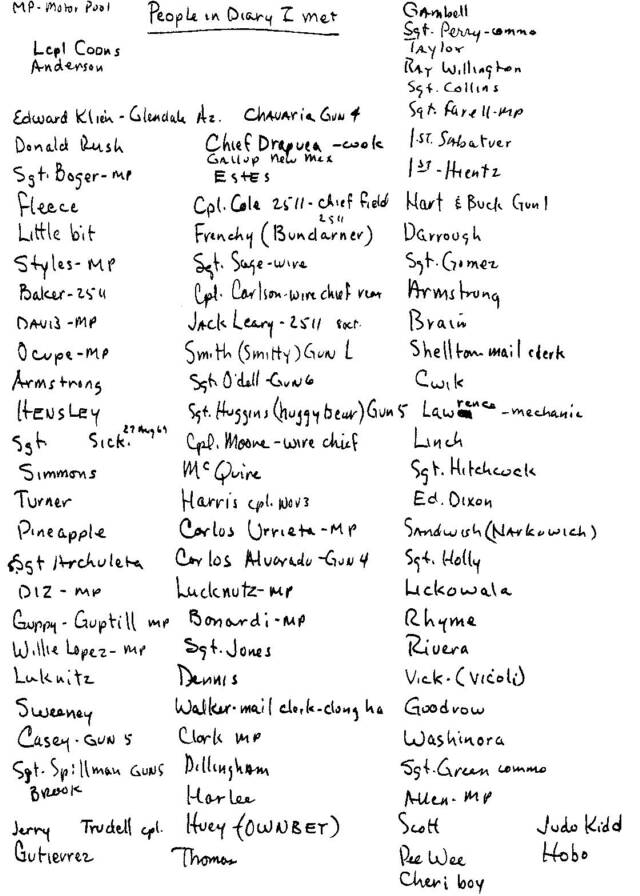 MP-Motor Pool
People in Diary I met
Lcpl Coons
Anderson
Edward Klien - Glendale Az.
Donald Rush
Sgt. Boger-MP
Fleece
Little bit
Styles-MP
Baker-2511
DAVIS-MP
Ocupe-MP
Armstrong
HENSLEY
Sgt Sick. 27 Aug 69
Simmons
Turner
Pineapple
Sgt Archuleta
DIZ-MP
Guppy-Guptill MP
Willie Lopez-MP
Luknitz
Sweeney
Casey-GUN 5
Sgt. Spillman GUN5
BROOK
Jerry Trudell cpl.
Gutierrez
CHAVARIA GUN 4
Chief Drapuea -cook
Gallup New Mex
EStES
Cpl. Cole 2511-chief field
Frenchy (Bundarner) 2511
Sgt. Sage-wire
Cpl. Carlson-wire chief rear
JACK Leary-2511
Smith (Smitty) GUN
Sgt. O'dell-GUN6
Sgt. Huggins (huggy bear) GUN 5
Cpl. Moore-wire chief
McQuire
Harris cpl. Nov3
Carlos Urrieta-MP
Carlos Alvarado-GUN 4
Lucknutz-MP
Bonardi-MP
Sgt. Jones
Dennis
Walker-mail clerk-dong ha
Clark MP
Dillingham
Harlee
Huey-(OWNBEY)
Thomas
GAmbell
Sgt. Perry-commo
TAylor
RAY Willington
Sgt. Collins
Sgt. Farell-MP
1st. Sabatuer
1st-Hientz
Hart & Buck Gun 1
Darrough
Sgt. Gomez
Armstrong
Brain
Shellton-mail clerk
Cwik
Lawrence-mechanic
Linch
Sgt. Hitchcock
Ed. Dixon
SANdwish (NARkowich)
Sgt. Holly
Lickowala
Rhyme
Rivera
Vick-(Vicoli)
Goodrow
Washinora
Sgt. Green commo
Allen-MP
Scott
Pee Wee
Cheri boy
Judo Kidd
Hobo